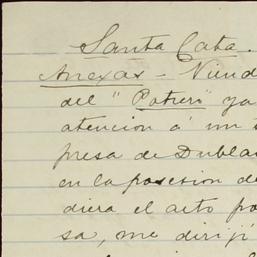 Santa Cata.
Anexas - Viend
del "Potrero" ya
atencion á un
presa de Dublan
en la posesion de
diera el acto po
sa, me dirijí